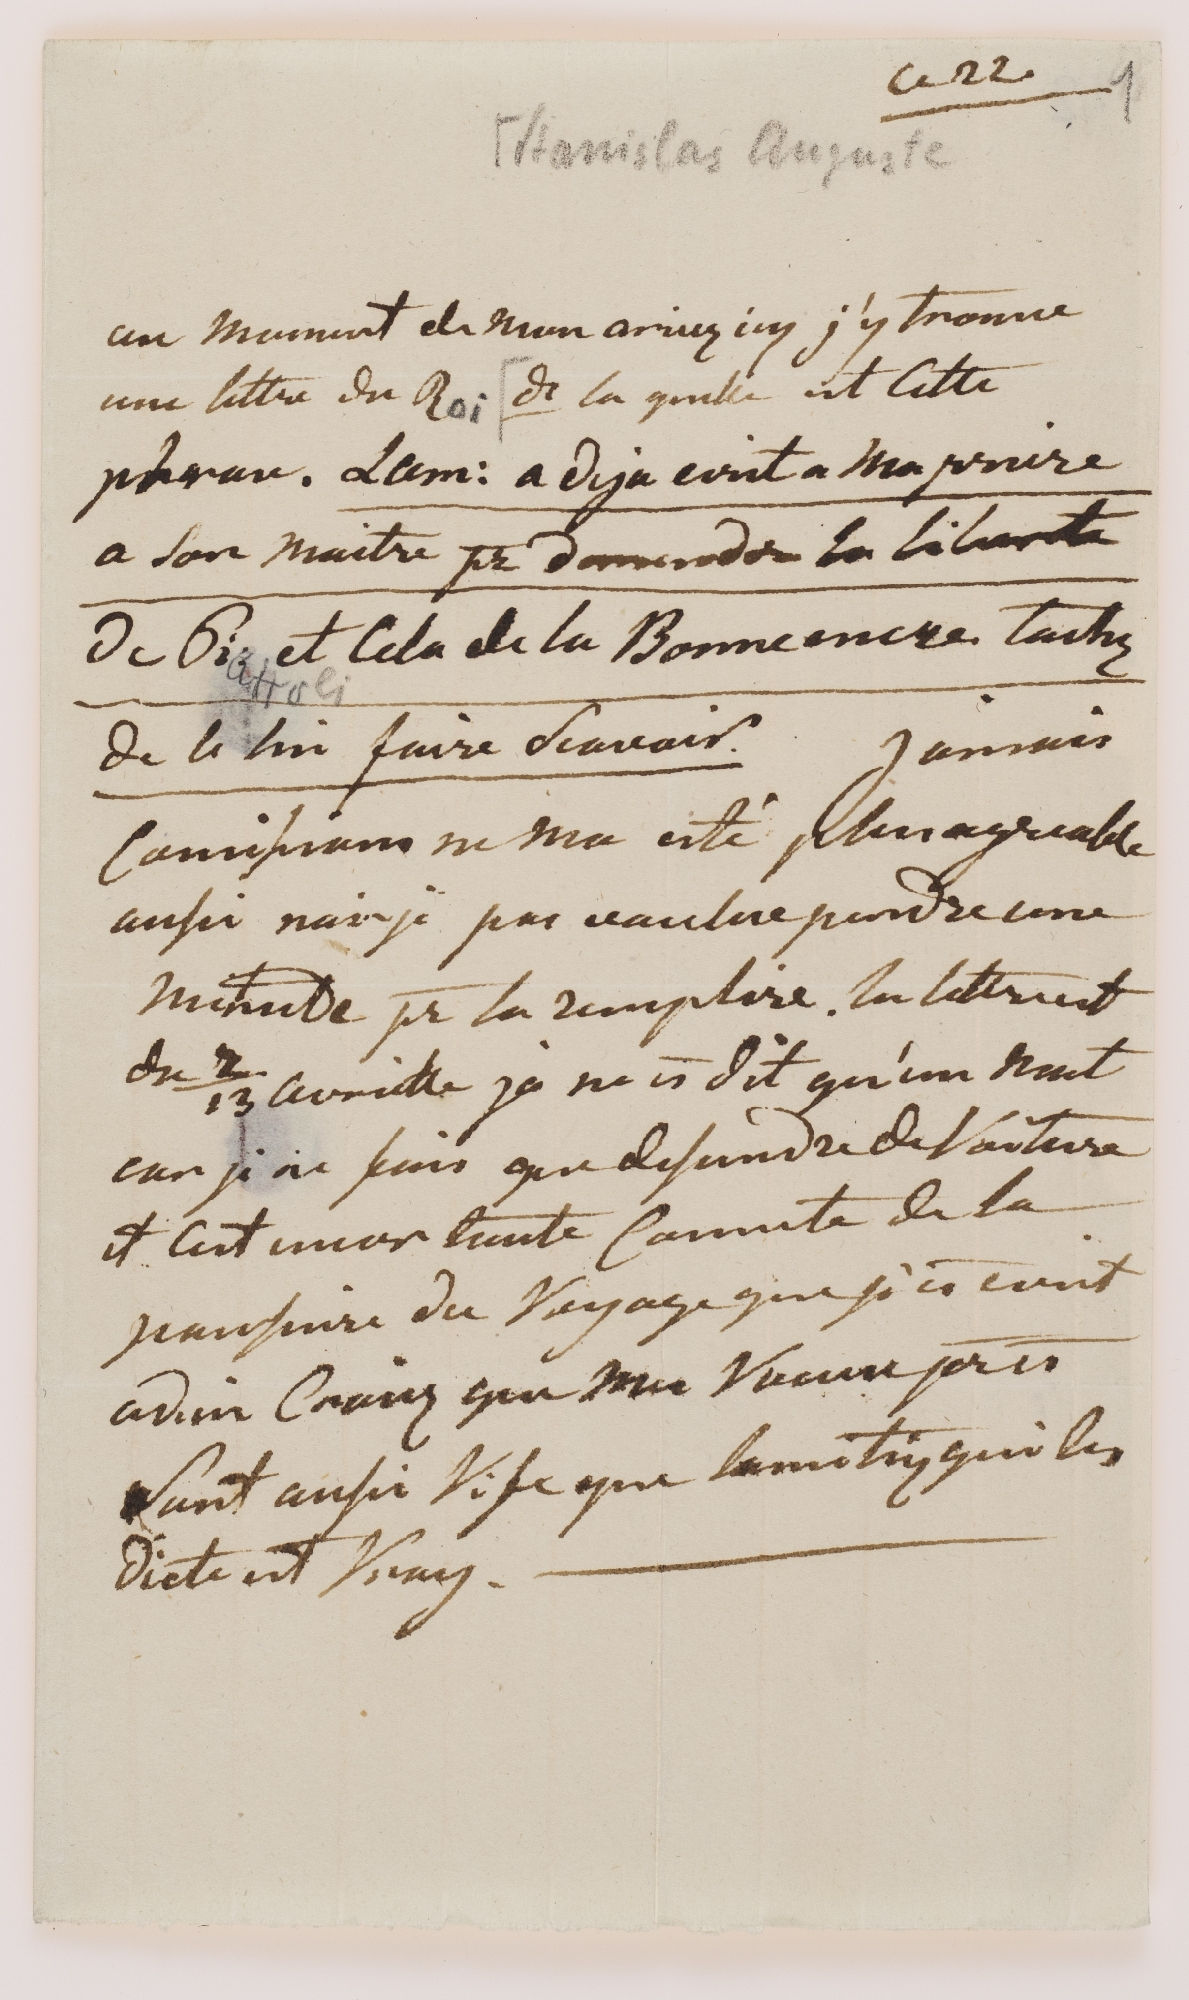 Ce 22. 9
[Stanislas Auguste
au moment de mon arivez icy j'y trouve
une lettre du Roi [de la quelle est Cette
phrase. Lam: a deja ecrit a ma priere
a son maitre pr demender la liberte
de Piattoli et Cela de la Bonne encre. tachez
de le lui faire scavoir. Jamais
Comission ne ma esté plus agreable
aussi nai je pas voulue perdre une
minute pr la remplire. la lettre est
du 2/13 avrille je ne vs dit qu'un mot
car je ne fais que desendre de Voiture
et C'est encor toute Couverte de la
poussiere du Voyage que je vs ecrit
adieu Croiez que mes Voeux pr vs
Sont aussi Vifs que lamitiez qui les
Dicte est Vray.